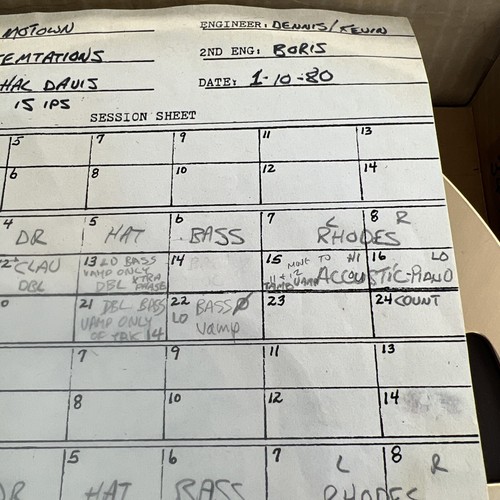 MOTOWN ENGINEER: DENNIS/KEVIN
TEMTATIONS 2ND ENG: BORIS
HAL DAVIS DATE: 1-10-80
15 IPS
SESSION SHEET
5 7 9 11 13
6 8 10 12 14
4 DR 5 HAT 6 BASS 7 L 8 R
RHODES
2 CLAV DBL 13 LO BASS VAMP ONLY DBL XTRA PHASE 14 15 MOVE TO 11 & 12 VAMP HI 16 LO
ACCOUSTIC PIANO
0 21 DBL BASS VAMP ONLY OF TRK 14 22 BASS LO Vamp 23 24 COUNT
7 9 11 13
8 10 12 14
5 6 7 L 8 R
DR HAT BASS RHODES